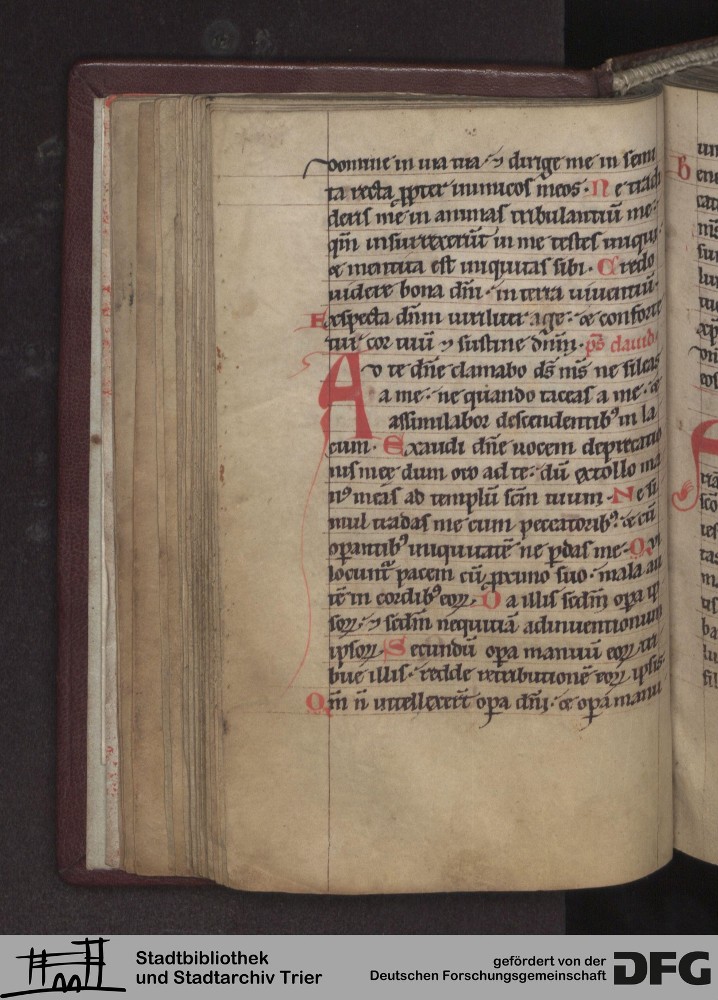 domine in uia tua · ⁊ dirige me in semi
ta recta ꝓpter inimicos meos · Ne tradi
deris me in animas tribulantiū me ·
qm̄ insurrexerūt in me testes iniqui ·
⁊ mentita est iniquitas sibi · Credo
uidere bona dn̄i · in terra uiuentiū ·
Exspecta dn̄m uiriliter age · ⁊ conforte
tur cor tuū ⁊ sustine dn̄m · ps̄ dauid
Ad te dn̄e clamabo ds̄ ms̄ ne sileas
a me · ne quando taceas a me · ⁊
assimilabor descendentibꝰ in la
cum · Exaudi dn̄e uocem deprecatio
nis mee dum oro ad te · dū extollo ma
nꝰ meas ad templū scm̄ tuum · Ne si
mul tradas me cum peccatoribꝰ · ⁊ cū
oꝑantibꝰ iniquitatē ne ꝑdas me · Qui
locunt᷑ pacem cū ꝓximo suo · mala au
tē in cordibꝰ eoꝝ · Da illis scdm̄ opa ip
soꝝ · ⁊ scdm̄ nequitiā adinuentionum
ipsoꝝ · Secundū opa manuū eoꝝ tri
bue illis · redde retributionē eoꝝ ipsis
Qm̄ n̄ intellexer̄t opa dn̄i · ⁊ opa manu
Stadtbibliothek
und Stadtarchiv Trier
gefördert von der
Deutschen Forschungsgemeinschaft
DFG